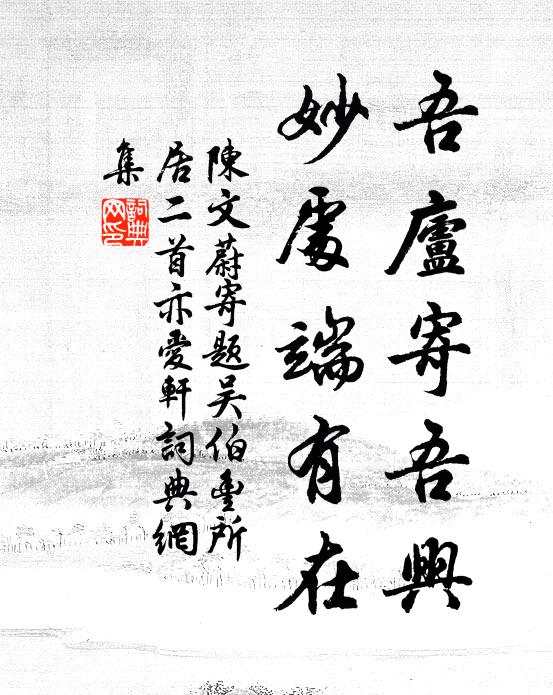 吾廬寄吾興
妙處端有在
陳文蔚寄題吴伯豐所
居二首亦愛軒詞典網
集
詞典
网印